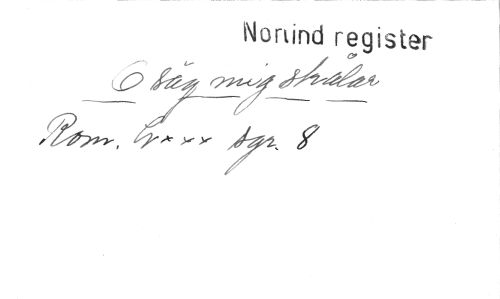 Norlind register
O säg mig skälar
Rom. Gxxx sgr. 8